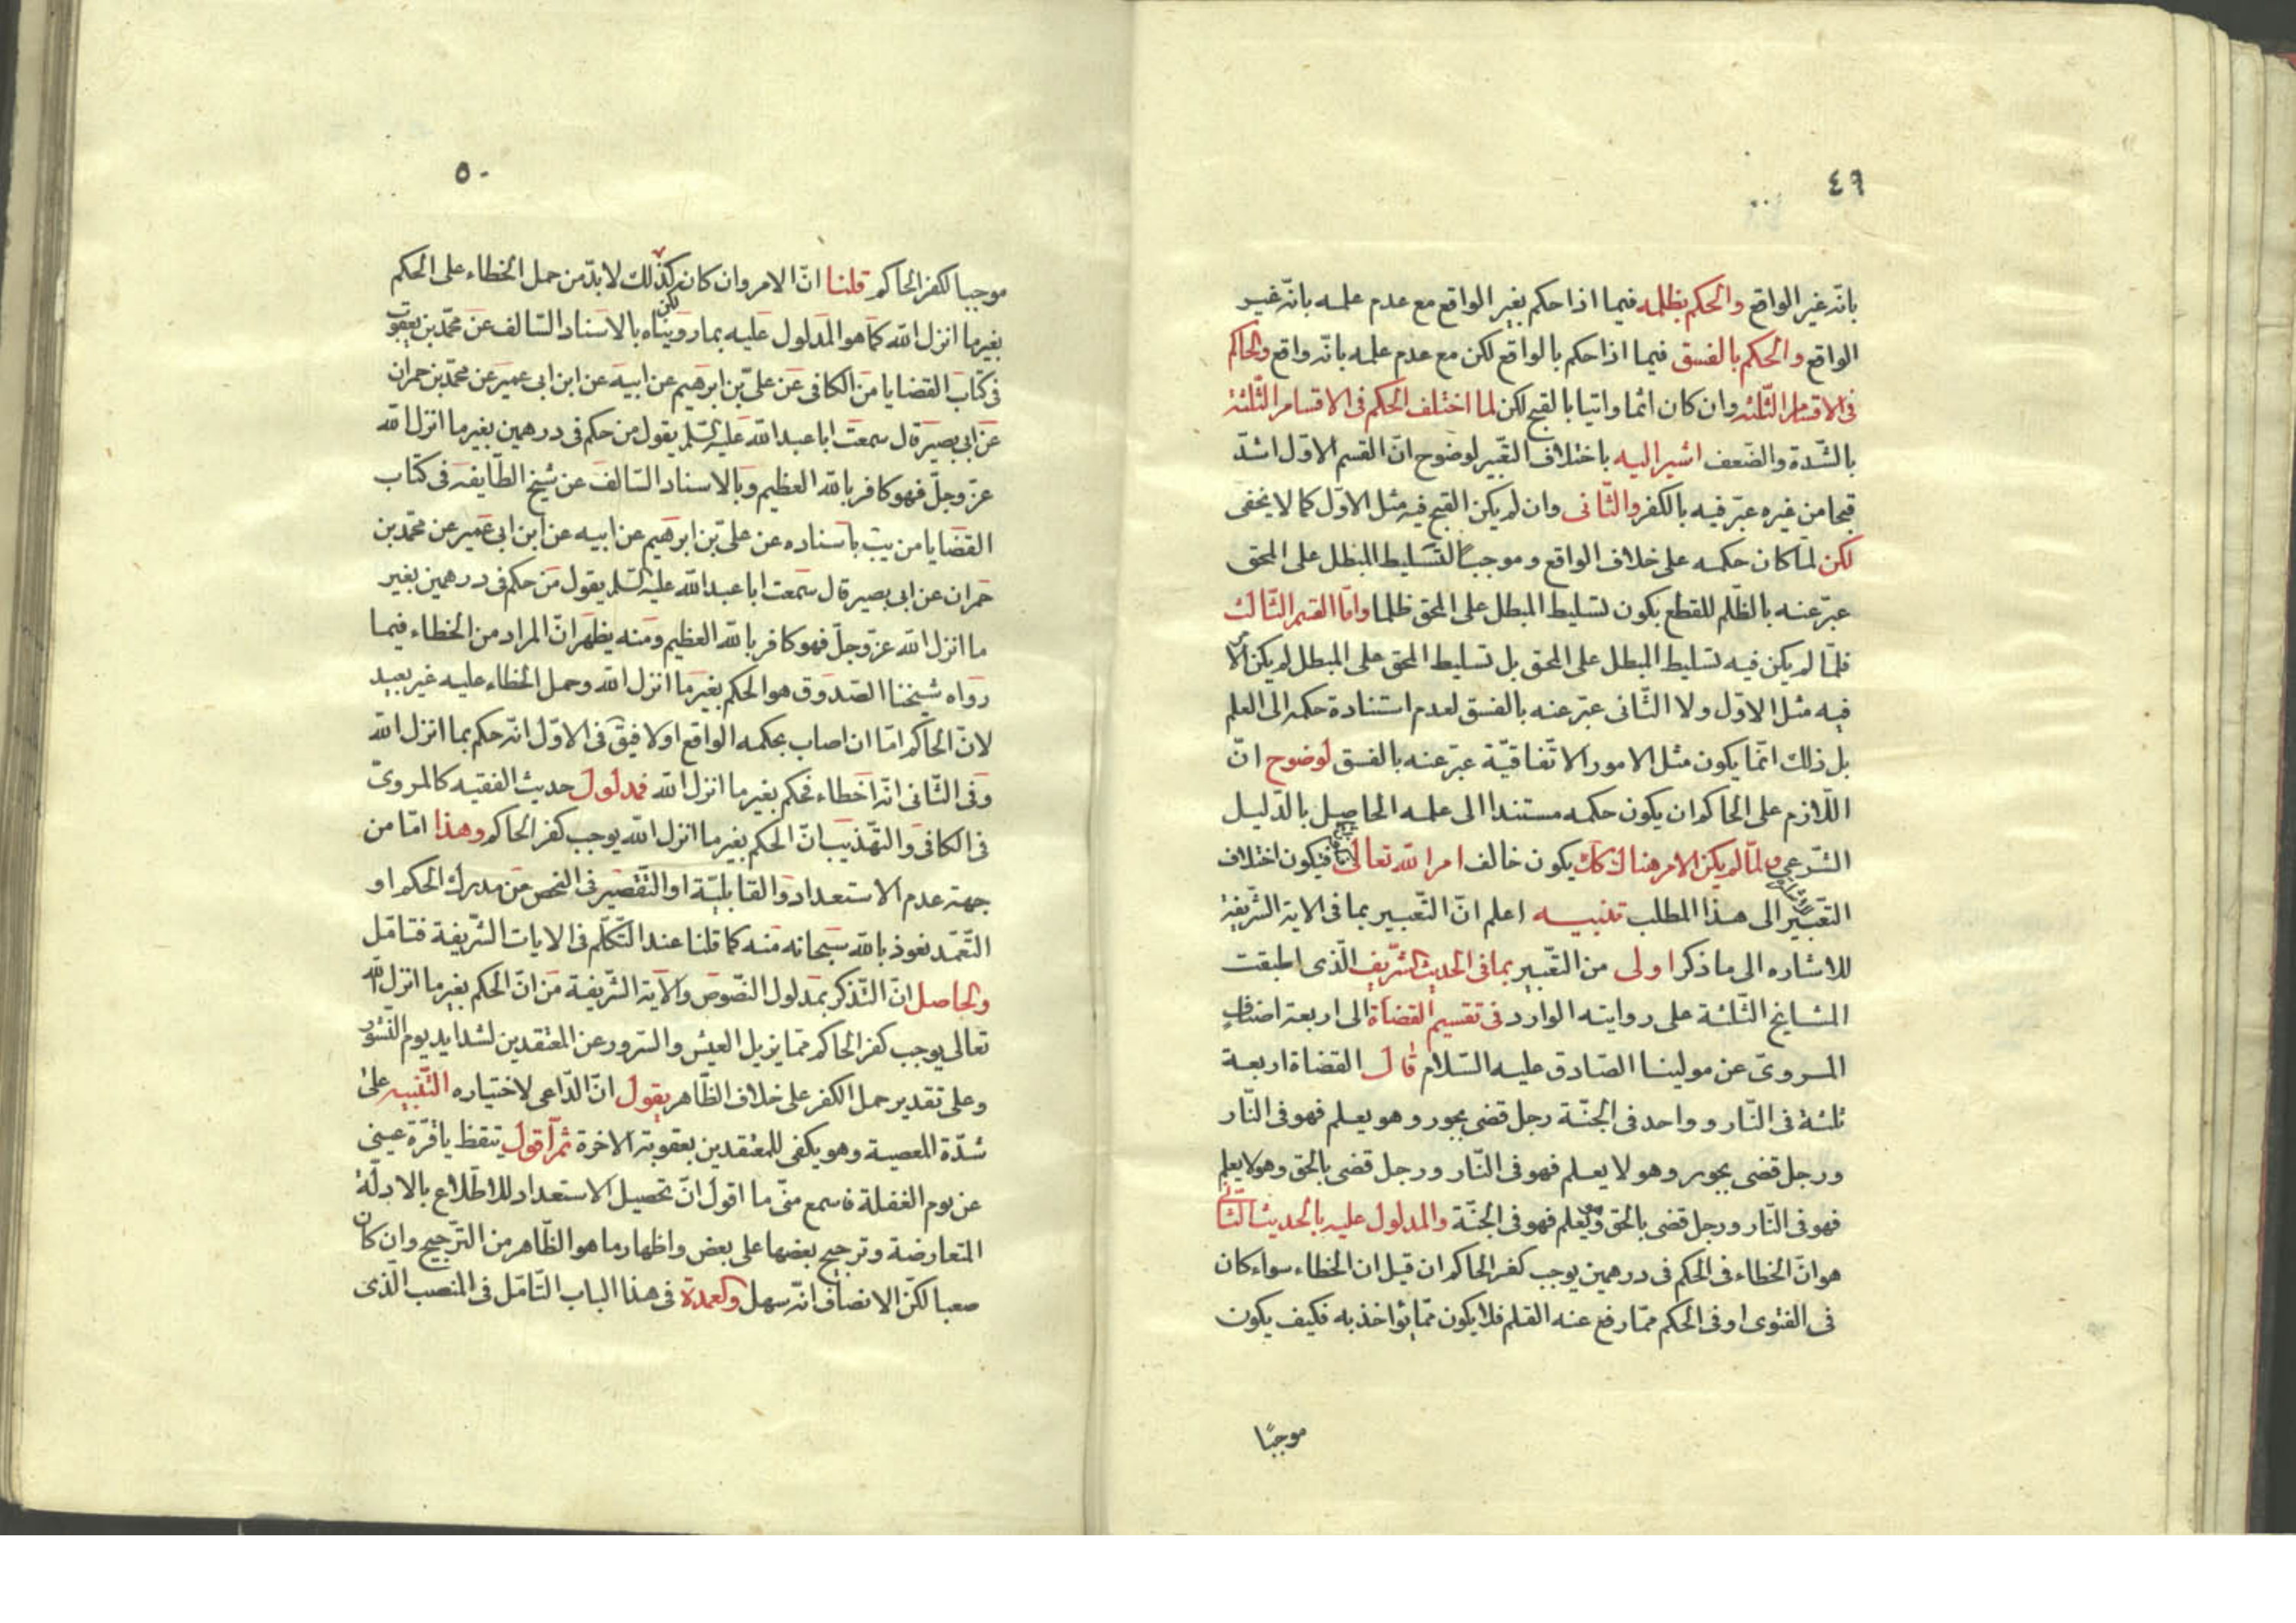 ٤٩
بانّه غير الواقع والحكم بظلمه فيما اذا حكم بغير الواقع مع عدم علمه بانّه غير
الواقع والحكم بالفسق فيما اذا حكم بالواقع لكن مع عدم علمه بانّه واقع والحاكم
فى الاقسام الثّلثة وان كان اثما واتيا بالقبح لكن لما اختلف الحكم فى الاقسام الثّلثة
بالشّدة والضّعف اشير اليه باختلاف التّعبير لوضوح انّ القسم الاوّل اشدّ
قبحا من غيره عبّر فيه بالكفر والثّانى وان لم يكن القبح فيه مثل الاوّل كما لا يخفى
لكن لمّا كان حكمه على خلاف الواقع وموجبًا لتسليط المبطل على المحق
عبّر عنه بالظّلم للقطع بكون تسليط المبطل على المحق ظلما وامّا القسم الثّالث
فلمّا لم يكن فيه تسليط المبطل على المحق بل تسليط المحق على المبطل لم يكن الامر
فيه مثل الاوّل ولا الثّانى عبّر عنه بالفسق لعدم استنادة حكمه الى العلم
بل ذلك انّما يكون مثل الامور الاتّفاقيّة عبّر عنه بالفسق لوضوح انّ
اللّازم على الحاكم ان يكون حكمه مستندا الى علمه الحاصل بالدّليل
الشّرعى ولمّا لم يكن الامر هناك كك يكون خالف امر الله تعالى فيكون اختلاف
التّعبير الى هذا المطلب تنبيه اعلم انّ التّعبير بما فى الاية الشّريفة
للاشاره الى ما ذكر اولى من التّعبير بما فى الحديث الشّريف الّذى اطبقت
المشايخ الثّلثة على روايته الوارد فى تقسيم القضاة الى اربعة اصناف
المروىّ عن مولينا الصّادق عليه السّلام قال القضاة اربعة
ثلثة فى النّار وواحد فى الجنّة رجل قضى بجور وهو يعلم فهو فى النّار
ورجل قضى بجور وهو لا يعلم فهو فى النّار ورجل قضى بالحق وهو لا يعلم
فهو فى النّار ورجل قضى بالحق وهو يعلم فهو فى الجنّة والمدلول عليه بالحديث الثّانى
هو انّ الخطاء فى الحكم فى درهمين يوجب كفر الحاكم ان قيل ان الخطاء سواء كان
فى الفتوى او فى الحكم ممّا رفع عنه القلم فلا يكون ممّا يؤاخذ به فكيف يكون
موجبًا
٥٠
موجبا لكفر الحاكم قلنا انّ الامر وان كان كذلك لكن لابدّ من حمل الخطاء على الحكم
بغير ما انزل الله كما هو المدلول عليه بما رويناه بالاسناد السّالف عن محمّد بن يعقوب
فى كتاب القضايا من الكافى عن علىّ بن ابرهيم عن ابيه عن ابن ابى عمير عن محمّد بن حمران
عن ابى بصير قال سمعت ابا عبد الله عليه السّلم يقول من حكم فى درهمين بغير ما انزل الله
عزّ وجلّ فهو كافر بالله العظيم وبالاسناد السّالف عن شيخ الطّايفة فى كتاب
القضايا من يب باسناده عن علىّ بن ابرهيم عن ابيه عن ابن ابى عمير عن محمّد بن
حمران عن ابى بصير قال سمعت ابا عبد الله عليه السّلم يقول من حكم فى درهمين بغير
ما انزل الله عزّ وجلّ فهو كافر بالله العظيم ومنه يظهر انّ المراد من الخطاء فيما
رواه شيخنا الصّدوق هو الحكم بغير ما انزل الله وحمل الخطاء عليه غير بعيد
لانّ الحاكم امّا ان اصاب بحكمه الواقع اولا فيق فى الاوّل انّه حكم بما انزل الله
وفى الثّانى انّه اخطاء فحكم بغير ما انزل الله فمدلول حديث الفقيه كالمروىّ
فى الكافى والتّهذيب انّ الحكم بغير ما انزل الله يوجب كفر الحاكم وهذا امّا من
جهة عدم الاستعداد والقابليّة او التّقصير فى الفحص من مدرك الحكم او
التّعمّد نعوذ بالله سبحانه منه كما قلنا عند التّكلّم فى الايات الشّريفة فتامّل
والحاصل انّ التّذكر بمدلول النّصوص والاية الشّريفة من انّ الحكم بغير ما انزل الله
تعالى يوجب كفر الحاكم ممّا يزيل العيش والسّرور عن المعتقدين لشدايد يوم النّشور
وعلى تقدير حمل الكفر على خلاف الظّاهر يقول انّ الدّاعى لاختياره التّنبيه على
شدّة المعصية وهو يكفى للمعتقدين بعقوبة الاخرة ثمّ اقول تيقظ يا قرّة عينى
عن نوم الغفلة فاسمع منّى ما اقول انّ تحصيل الاستعداد للاطّلاع بالادلّة
المتعارضة وترجيح بعضها على بعض واظهار ما هو الظّاهر من التّرجيح وان كان
صعبا لكنّ الانصاف انّه سهل والعمدة فى هذا الباب التّامّل فى المنصب الّذى